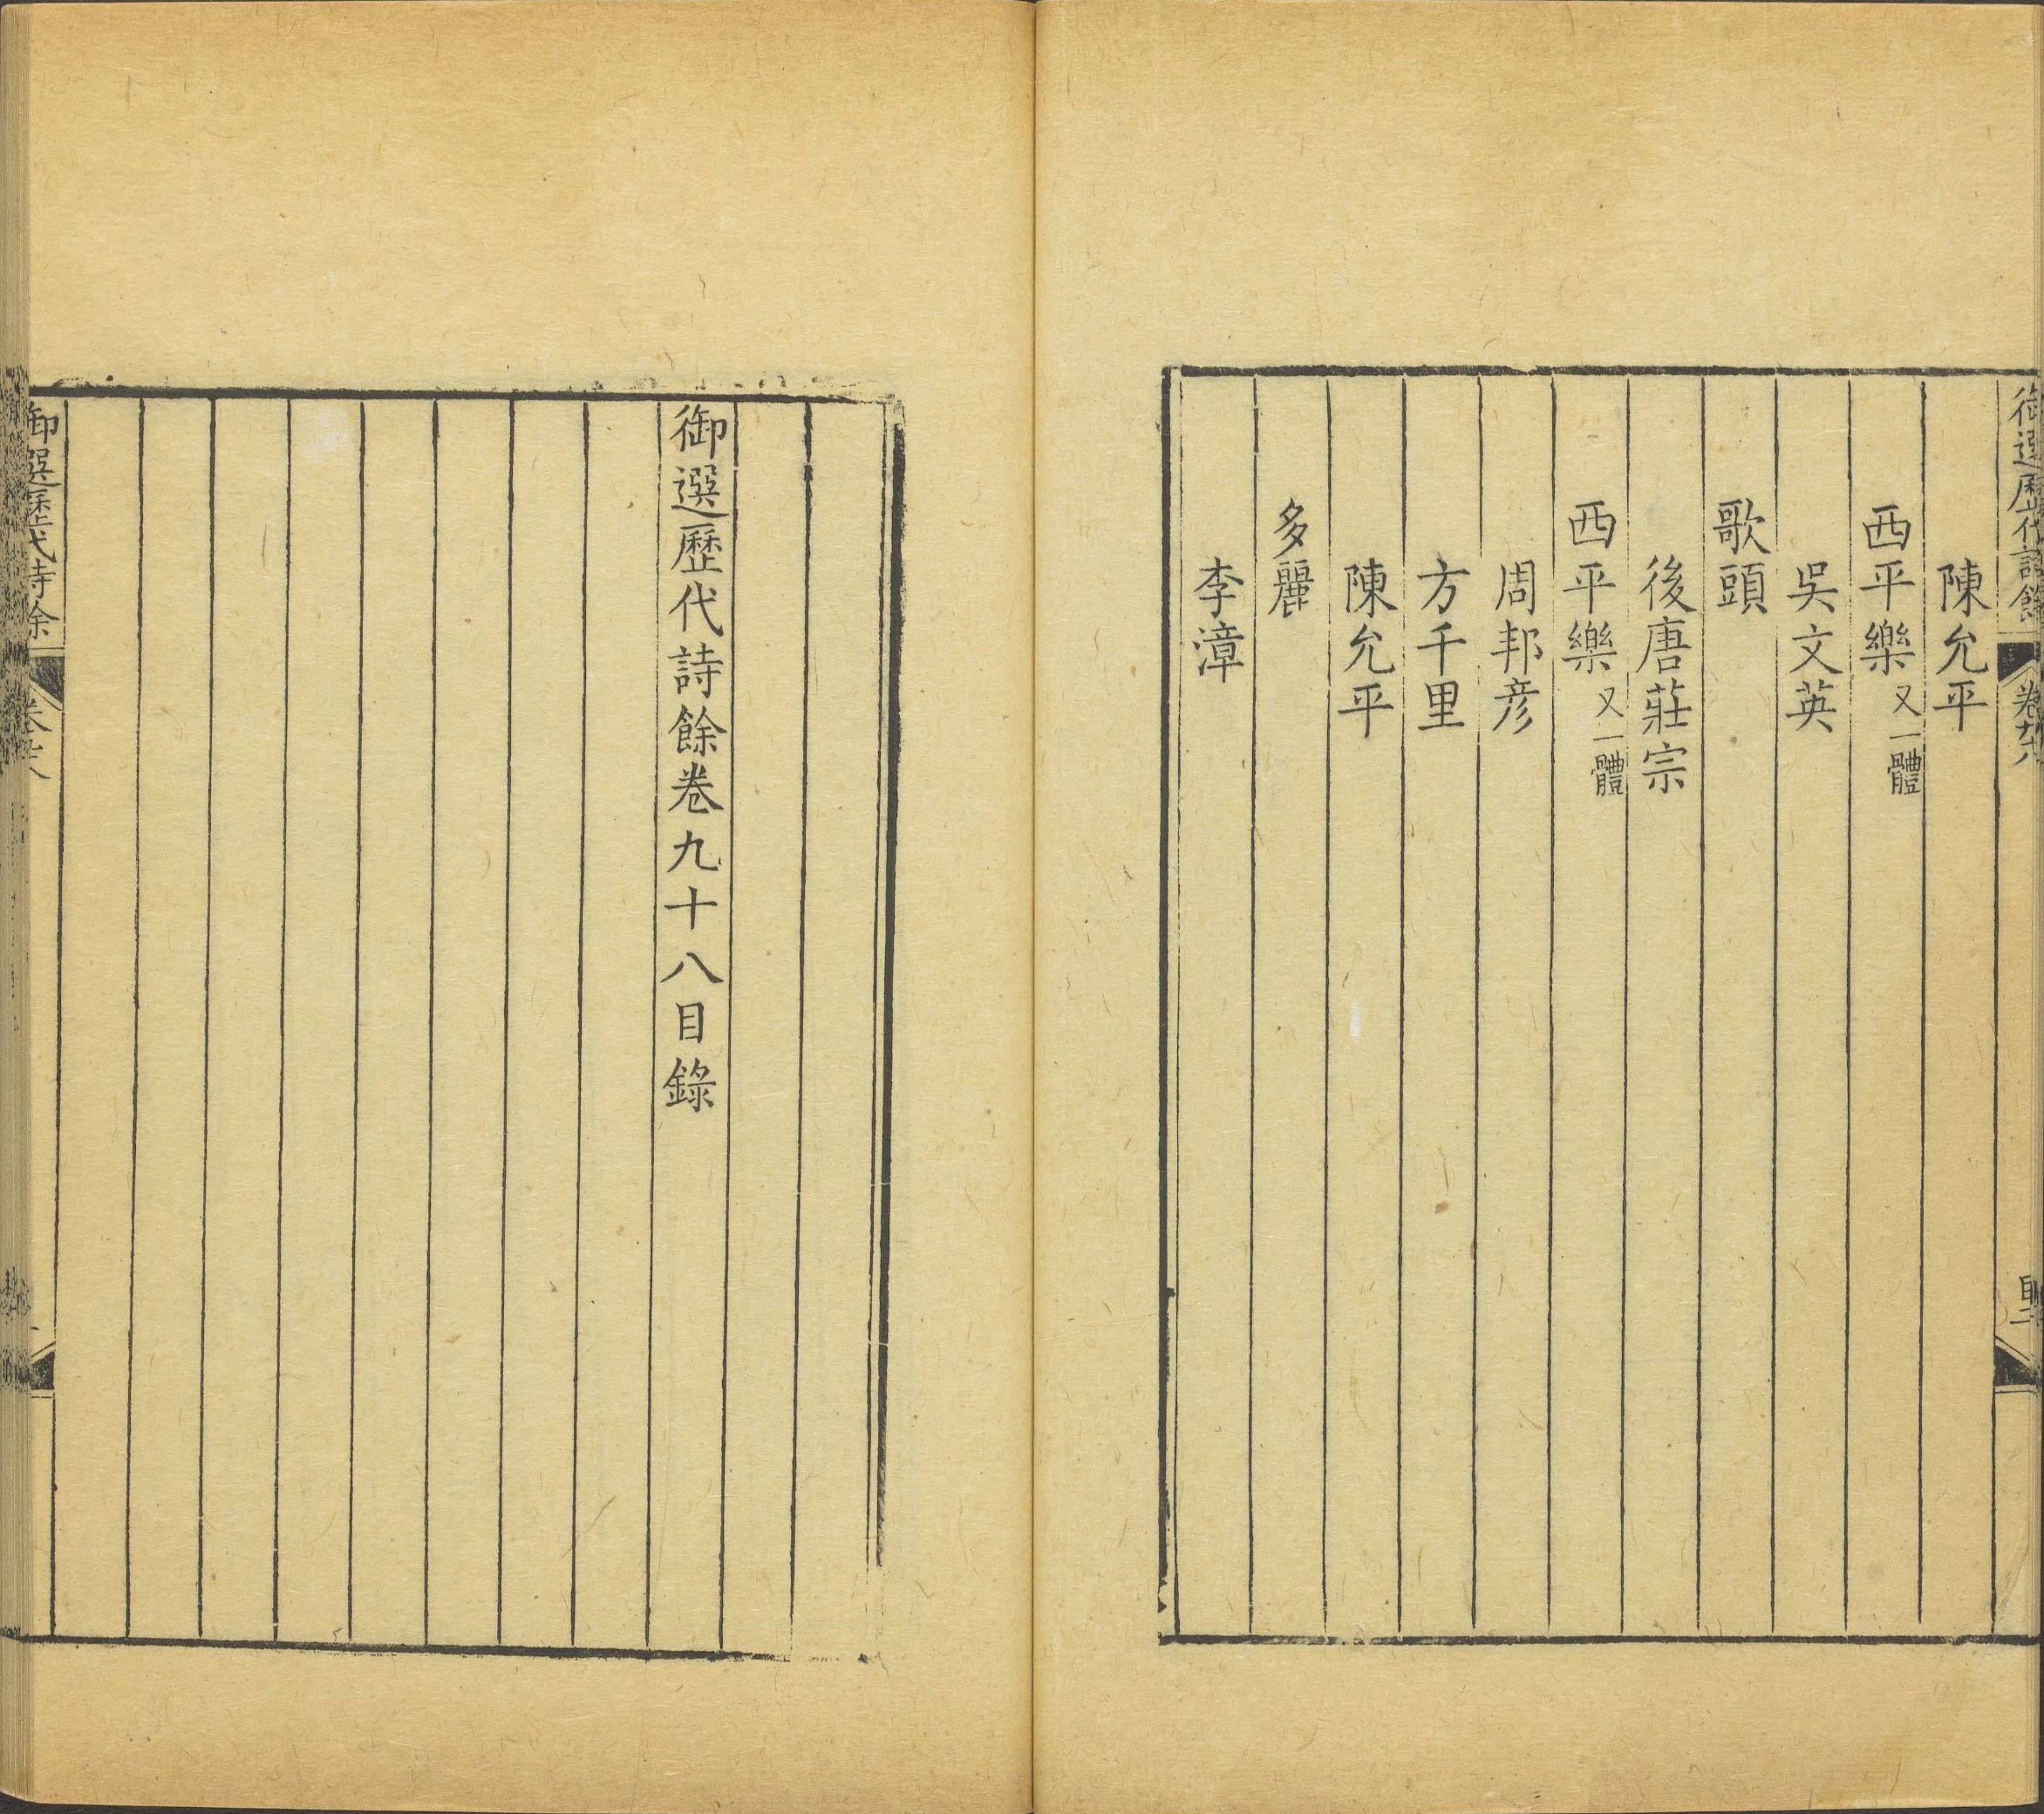 御選歷代詩餘 卷九十八
陳允平
西平樂 又一體
吳文英
歌頭
後唐莊宗
西平樂 又一體
周邦彦
方千里
陳允平
多麗
李漳
御選歷代詩餘卷九十八目錄
御選歷代詩餘